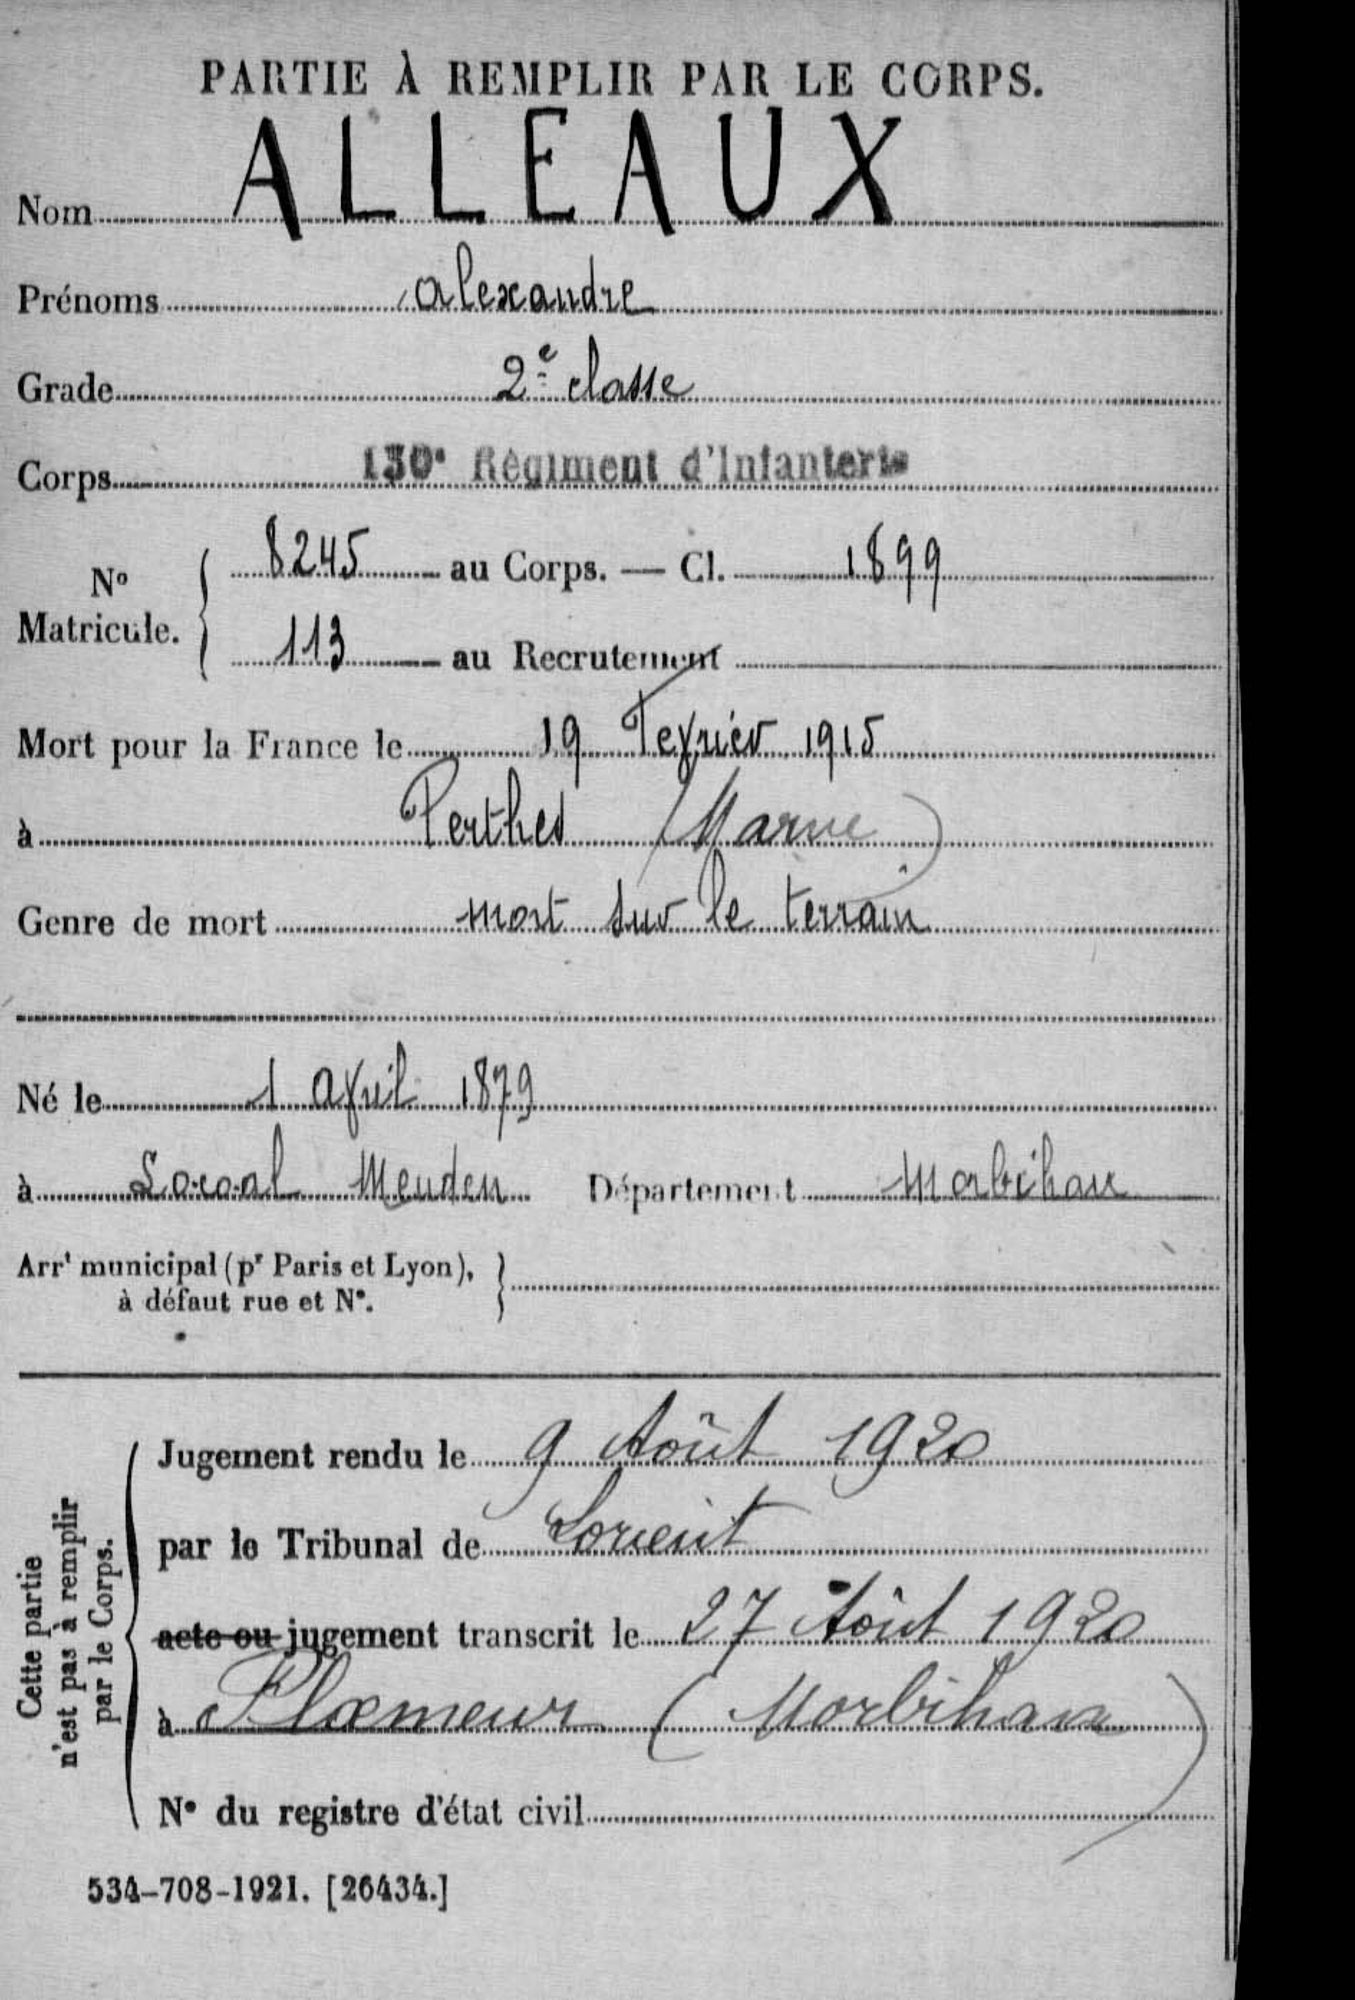 PARTIE À REMPLIR PAR LE CORPS.
Nom ALLEAUX
Prénoms Alexandre
Grade 2e classe
Corps 130e Régiment d'Infanterie
N° Matricule. { 8245 au Corps. — Cl. 1899
113 au Recrutement
Mort pour la France le 19 Fevrier 1915
à Perthes (Marne)
Genre de mort mort sur le terrain
Né le 1 Avril 1879
à Locoal Menden Département Morbihan
Arrt municipal (pr Paris et Lyon), }
à défaut rue et N°.
Cette partie
n'est pas à remplir
par le Corps.
Jugement rendu le 9 Août 1920
par le Tribunal de Lorient
acte ou jugement transcrit le 27 Août 1920
à Plœmeur (Morbihan)
N° du registre d'état civil
534-708-1921. [26434.]